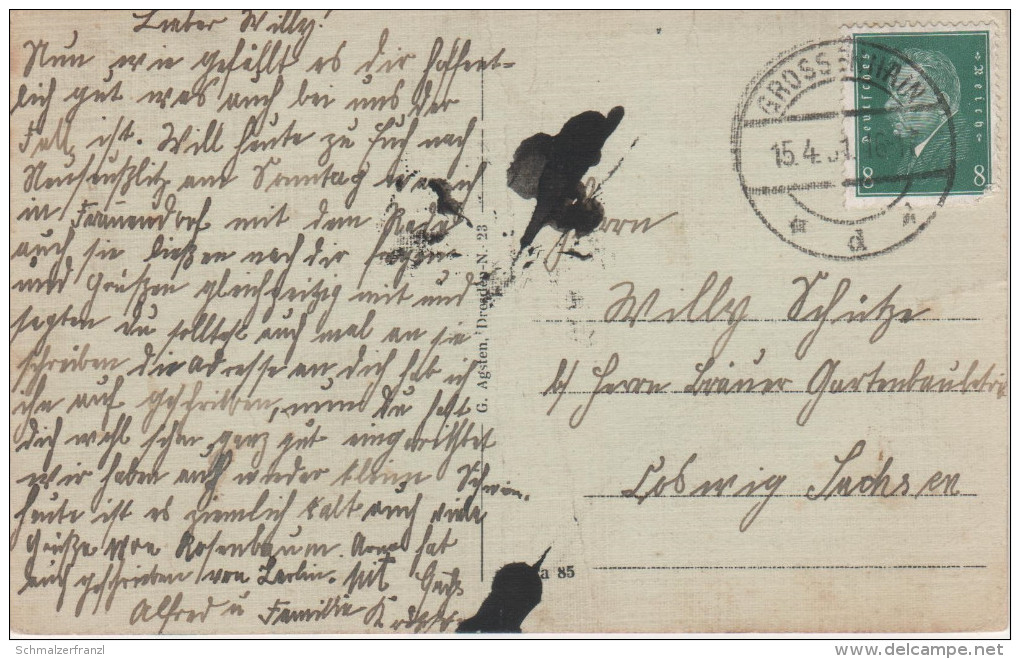 Lieber Willy!
Nun wie gefällt es dir hoffent-
lich gut was auch bei uns der
Fall ist. Will heute zu Euch nach
am Sonntag war ich
in Frauendorf mit dem Rade
auch sie ließen nach dir fragen
und Grüßen gleichzeitig mit und
sagten du solltest auch mal an sie
schreiben die Adresse an dich hab ich
ihn auf geschrieben, nun du hast
dich wohl schon ganz gut eingerichtet
wir haben auch wieder kleine Schwein.
heute ist es ziemlich kalt auch viele
Grüße von Rosenbaum. hat
auch geschrieben von Berlin. Mit
Alfred u Familie
G. Agsten, Dresden-N. 23
a 85
GROSSENHAIN
15.4.31
d
Deutsches Reich
8 8
Herrn
Willy Schütze
b/ Herrn Bräuer
Coswig Sachsen
© Schmalzerfranzl
www.delcampe.net